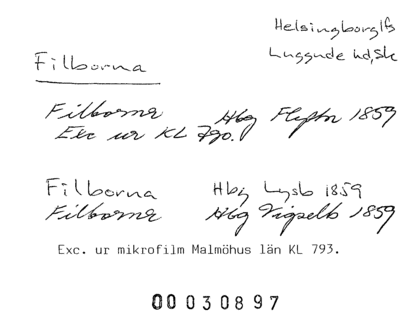 Helsingborg lfs
Luggude hd, Sk
Filborna
Filborna Hbg Flyttn 1859
Exc ur KL 790.
Filborna Hbg Lysb 1859
Filborna Hbg Vigselb 1859
Exc. ur mikrofilm Malmöhus län KL 793.
00030897